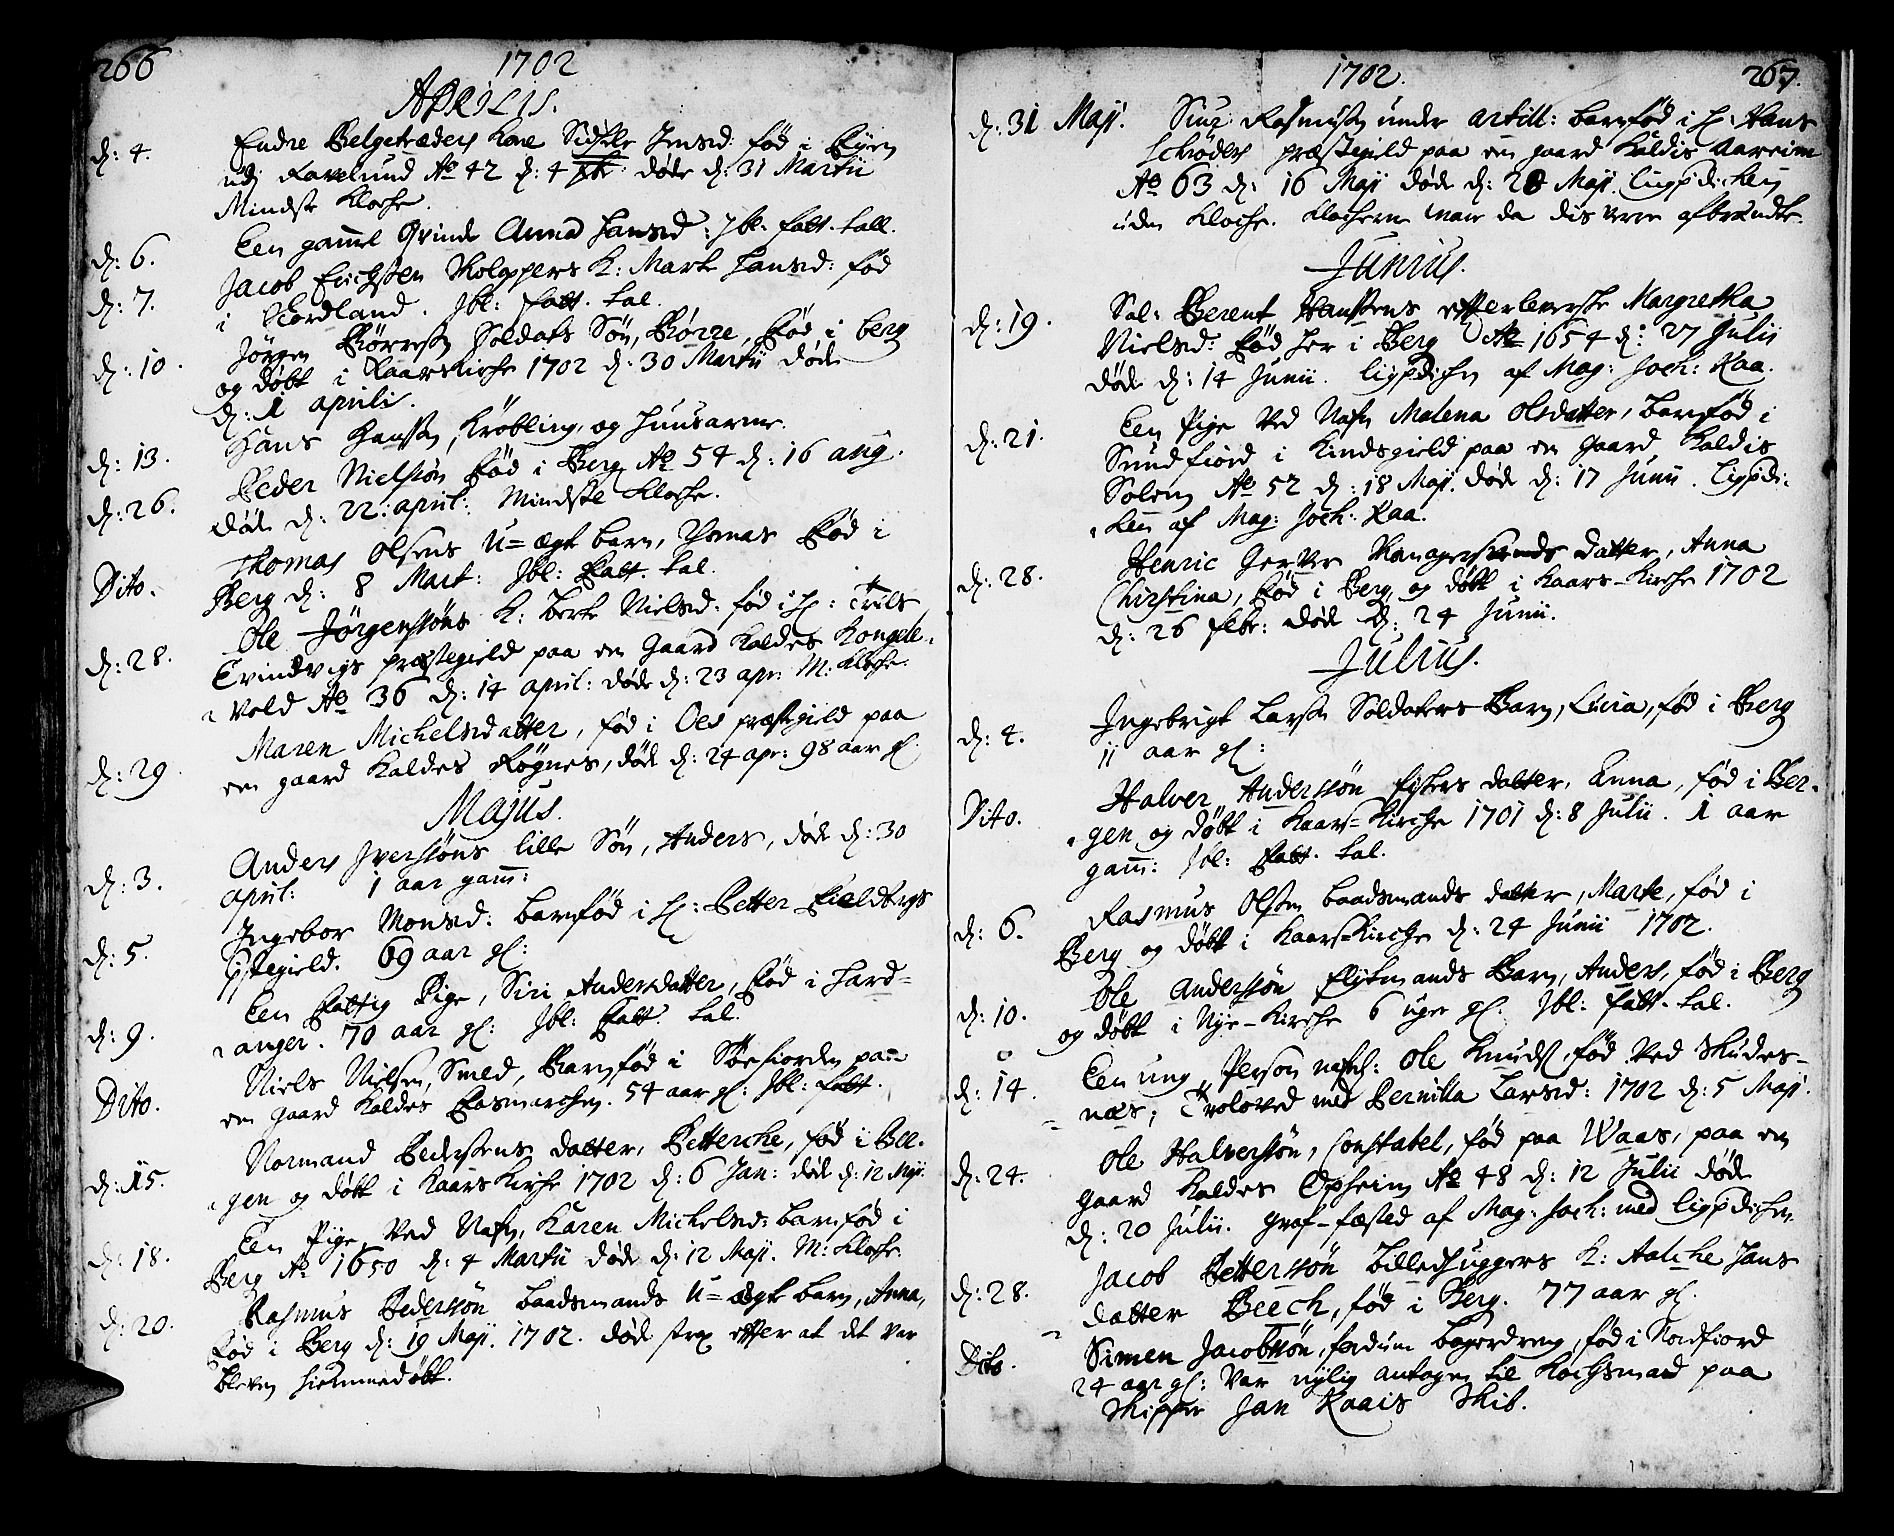 266
1702
APRILIS.
d: 4. Endre Belgetræders Kone Sidsele Jensd: fød i Eyen
udj Ravelund Ao 42 d: 4 døde d: 31 Martii
Mindste Klocke.
d: 6. Een gamel Qvinde Anna Hansd: Jbl: fatt. Call.
d: 7. Jacob Erichsen Skolappers K: Marte Hansd: fød
i Nordland. Jbl: fatt. Cal.
d: 10. Jörgen Børresøn Soldats Sön, Børre, fød i berg
og döbt i Kaarskirche 1702 d: 30 Martii døde
d: 1 aprilis.
d: 13. Hans Hanssøn, Krøbling, og Huusarme.
d: 26. Peder Nielssøn fød i Berg Ao 54 d: 16 aug.
døde d: 22: april: Mindste Klocke.
Dito. Thomas Olsens U=ægt barn, Jonas fød i
Berg d: 8 Mart: Jbl: fatt. Cal.
d: 28. Ole Jørgenssøns K: Berte Nielsd: fød i H: Troils
Evindvigs præstegield paa en Gaard kaldes Kongele-
Vold Ao 36 d: 14 april: døde d: 23 apr: M: Klocke.
d: 29. Maren Michelsdatter, fød i Oes præstegield paa
en gaard kaldes Røgnes, døde d: 24 apr: 98 aar gl.
Majus.
d: 3. Anders Jverssøns lille Sön, Anders, døde d: 30
april: 1 aar gam:
d: 5. Ingebor Monsd: barnfød i H: Petter Fieldbergs
Pstegield. 69 aar gl:
d: 9. Een fattig Pige, Siri Andersdatter, fød i Hard=
anger. 70 aar gl: Jbl: Fatt. Cal.
Dito. Niels Nielsen, Smed, Barnfød i Sørfiorden paa
en gaard kaldes Easmarchen. 54 aar gl: Jbl: fatt.
d: 15. Normand Pedersens datter, Petterche, fød i Ber-
gen og døbt i Kaars Kirche 1702 d: 6 Jan: døde d: 12 Maji
d: 18. Een Pige, Ved Nafn, Karen Michelsd: barnfød i
Berg Ao 1650 d: 4 Martii døde d: 12 Maji. M: Klocke
d: 20. Rasmus Pederssøn baadsmands U=ægt barn, Anna,
fød i Berg d: 19 Maji. 1702. døde strax efter at det var
bleven hiemmedøbt.
1702.
267.
d: 31 Maji. Siur Rasmussøn under artill: barnfød i H: Hans
Schrøders præstegield paa en gaard kaldis Aareim
Ao 63 d: 16 Maji døde d: 28 Maji. Liigpdichen
uden Klocke. Klockerne vare da disverre afbrændte.
Junius.
d: 19. Sal: Berent Hanssens efterleverske Margretha
Nielsd: fød her i Berg Ao 1654 d: 27 Julii
døde d: 14 Junii. Ligpdichen af Mag: Joch: Kaa.
d: 21. Een Pige Ved Nafn Malena Olsdatter, barnfød i
Sundfiord i Kindsgield paa en Gaard kaldis
Solem Ao 52 d: 18 Maji. døde d: 17 Junii. Ligpdi-
chen af Mag: Joch: Kaa.
d: 28. Henric datter, Anna
Christina, fød i Berg, og døbt i Kaars-Kirche 1702
d: 26 febr: døde d: 24 Junii.
Julius.
d: 4. Ingebrigt Larsøn Soldaters Barn, Livia, fød i Berg
11 aar gl:
Dito. Halver Anderssön fiskers datter, Anna, fød i Ber-
gen og døbt i Kaars=Kirche 1701 d: 8 Julii. 1 aar
gam: Jbl: fatt. Cal.
d: 6. Rasmus Olsøn baadsmands datter, Marte, fød i
Berg og døbt i Kaars=Kirche d: 24 Junii 1702.
d: 10. Ole Anderssøn flytmands Barn, Anders, fød i Berg
og døbt i Nye-Kirche 6 uger gl. Jbl: fatt. Cal.
d: 14. Een ung Person nafnl: Ole Knuds, fød Ved Skudes-
næs; Troloved med Pernilla Larsd: 1702 d: 5 Maji
d: 24. Ole Halverssøn, Constabel, fød paa Waas, paa en
gaard kaldes Opheim Ao 48 d: 12 Julii døde
d: 20 Julii. Graf-fæsted af Mag: Joch: med Ligpdichen
d: 28. Jacob Petterssøn billedhuggers K: Aalche Hans
datter Beech, fød i Berg. 77 aar gl.
Dito. Simen Jacobssøn, fordum bagerdreng, fød i Nordfiord
24 aar gl: Var nylig antagen til Kochsmand paa
Skipper Jan Kaais Skib.